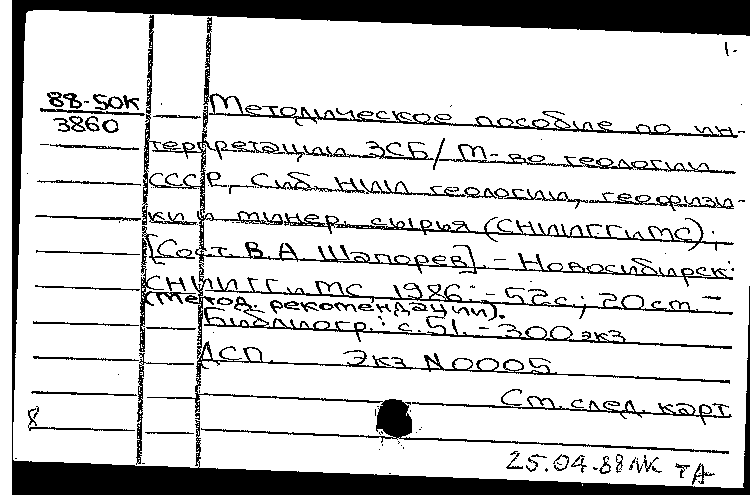 1.
88-50К
3860
Методическое пособие по ин-
терпретации ЗСБ/М-во геологии
СССР, Сиб. НИИ геологии, геофизи-
ки и минер. сырья (СНИИГГиМС);
[Сост. В.А Шапорев]. - Новосибирск:
СНИИГГиМС, 1986. - 52с.; 20см. -
(Метод. рекомендации).
Библиогр.: с. 51. - 300 экз
ДСП. Экз N0005
См. след. карт
8
25.04.88